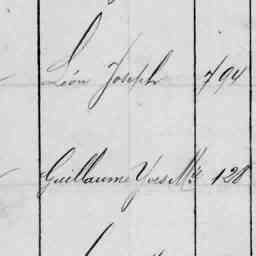 Léon Joseph 794
Guillaume Yves Mie 128